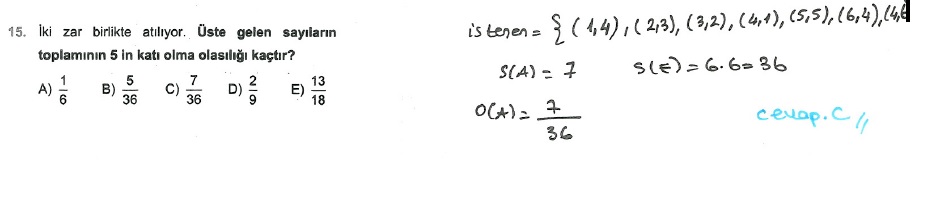 15. İki zar birlikte atılıyor. Üste gelen sayıların
toplamının 5 in katı olma olasılığı kaçtır?
A) 1/6 B) 5/36 C) 7/36 D) 2/9 E) 13/18
istenen = { (1,4), (2,3), (3,2), (4,1), (5,5), (6,4), (4,6
S(A) = 7 S(E) = 6.6 = 36
O(A) = 7/36
cevap.C //